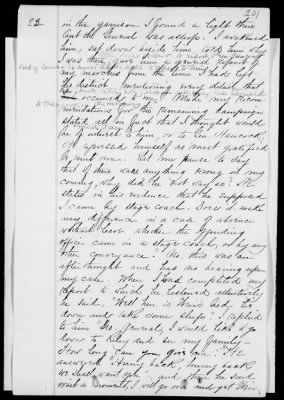 22
201
in the garrison I found a light there
but the General was asleep. I awakened
him, sat down beside him told him why
I was there, gave him a general report of
my marches from the time I had left
the district, mentioning every detail that
occurred to me. Made my recom-
mendations for the remaining campaign
stated all on fact that I thought would
be of interest to him, or to Gen. Hancock.
He expressed himself as most gratified
to meet me. Let me pause to say
that if there was anything wrong in my
coming, why did he not say so? He
states in his evidence that he supposed
I came by stage coach. Does it make
any difference in a case of absence
without leave whether the offending
officer came in a stage coach, or by any
other conveyance. No, this was an
afterthought and has no bearing upon
my case. When I had completed my
report to which he listened attentively
he said, "Well here is 's bed, lie
down and take some sleep." I replied
to him "No General, I would like to go
down to Riley and see my family-
How long can you give me?" He
answered "Hurry back, hurry back
we shall want you" - and then he said
wait a moment, I will go over and get